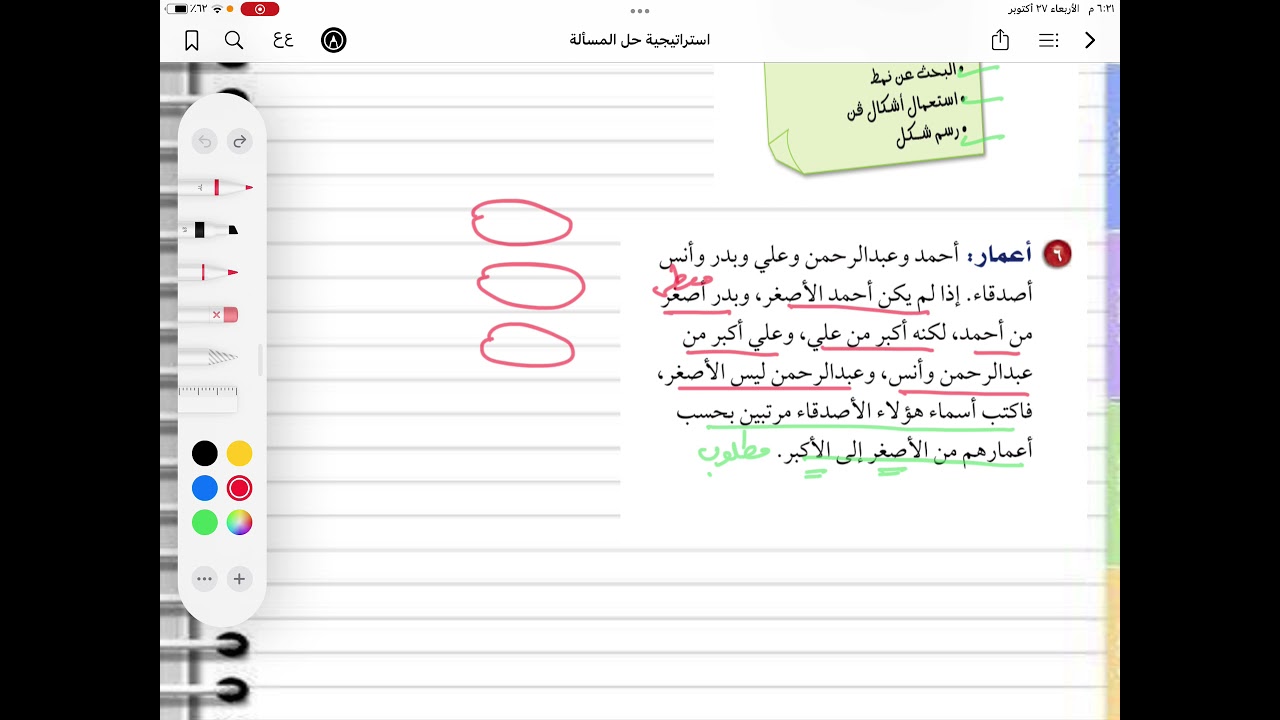 ٦:٢١ م الأربعاء ٢٧ أكتوبر
٪٦٢
استراتيجية حل المسألة
عع
•البحث عن نمط
•استعمال أشكال فن
•رسم شكل
٦ أعمار: أحمد وعبدالرحمن وعلي وبدر وأنس
معطى
أصدقاء. إذا لم يكن أحمد الأصغر، وبدر أصغر
من أحمد، لكنه أكبر من علي، وعلي أكبر من
عبدالرحمن وأنس، وعبدالرحمن ليس الأصغر،
فاكتب أسماء هؤلاء الأصدقاء مرتبين بحسب
أعمارهم من الأصغر إلى الأكبر. مطلوب